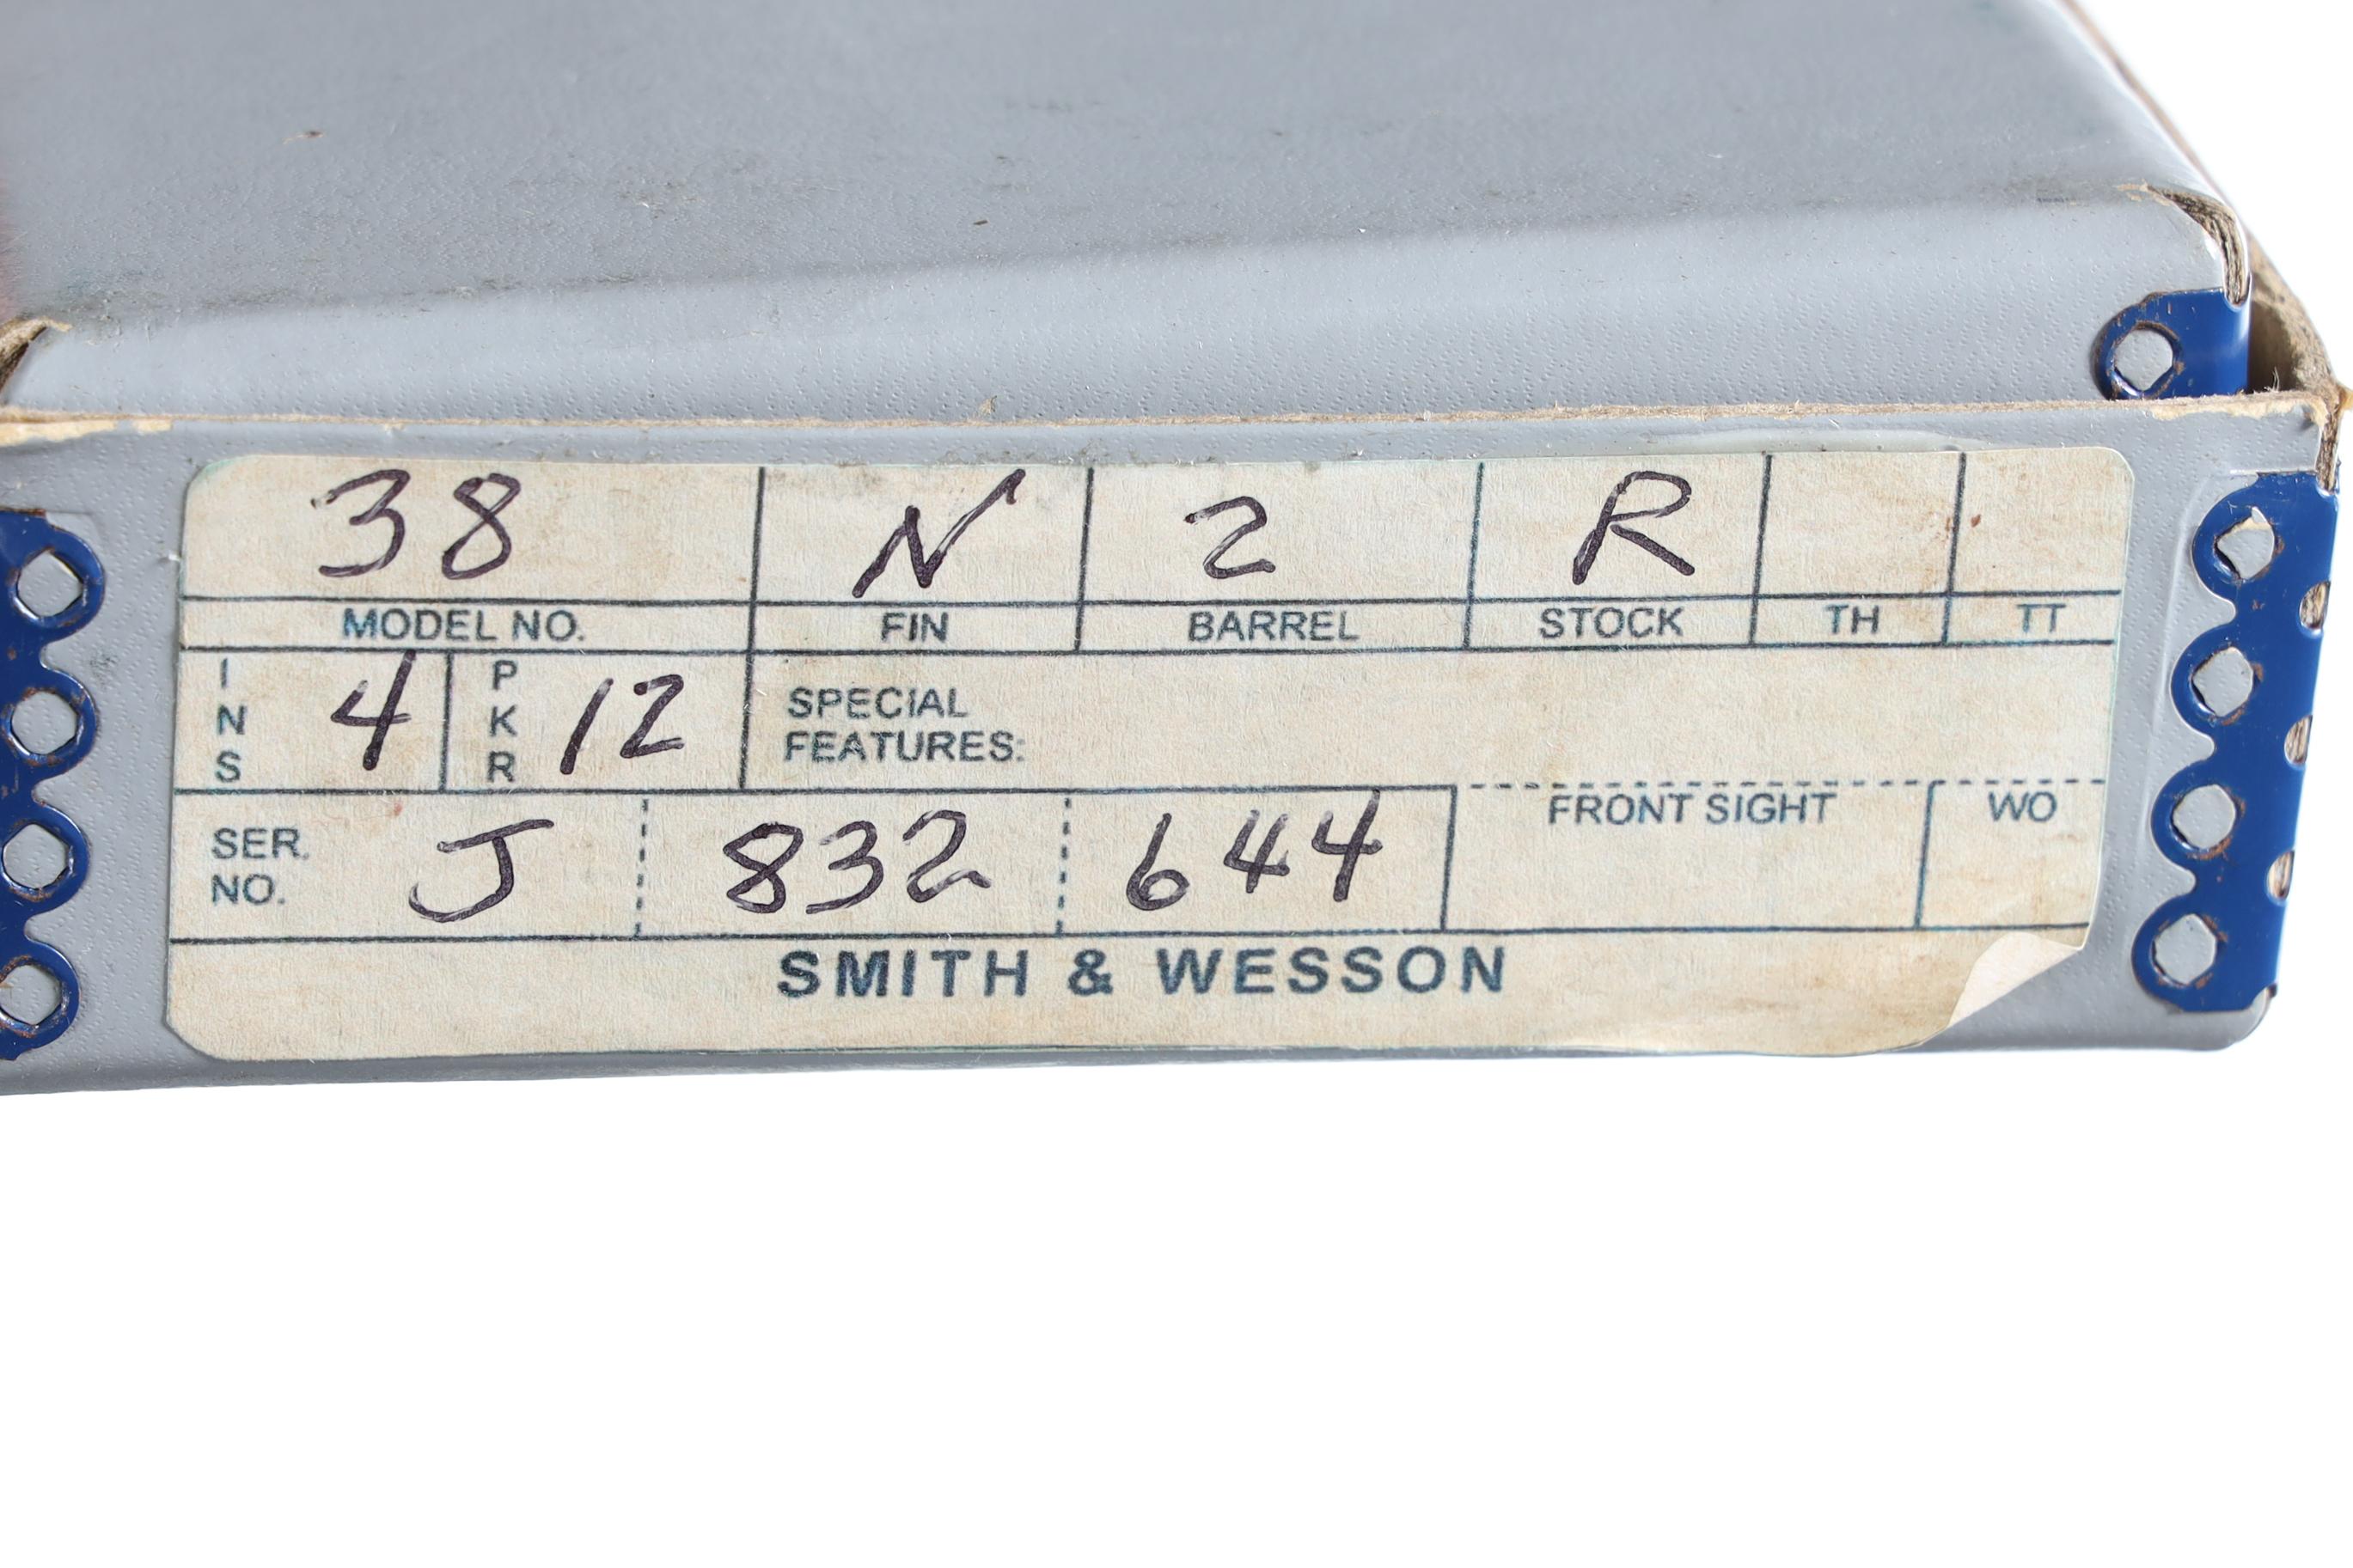 38 N 2 R
MODEL NO. FIN BARREL STOCK TH TT
INS 4 PKR 12 SPECIAL
FEATURES:
SER. NO. J 832 644 FRONT SIGHT WO
SMITH & WESSON